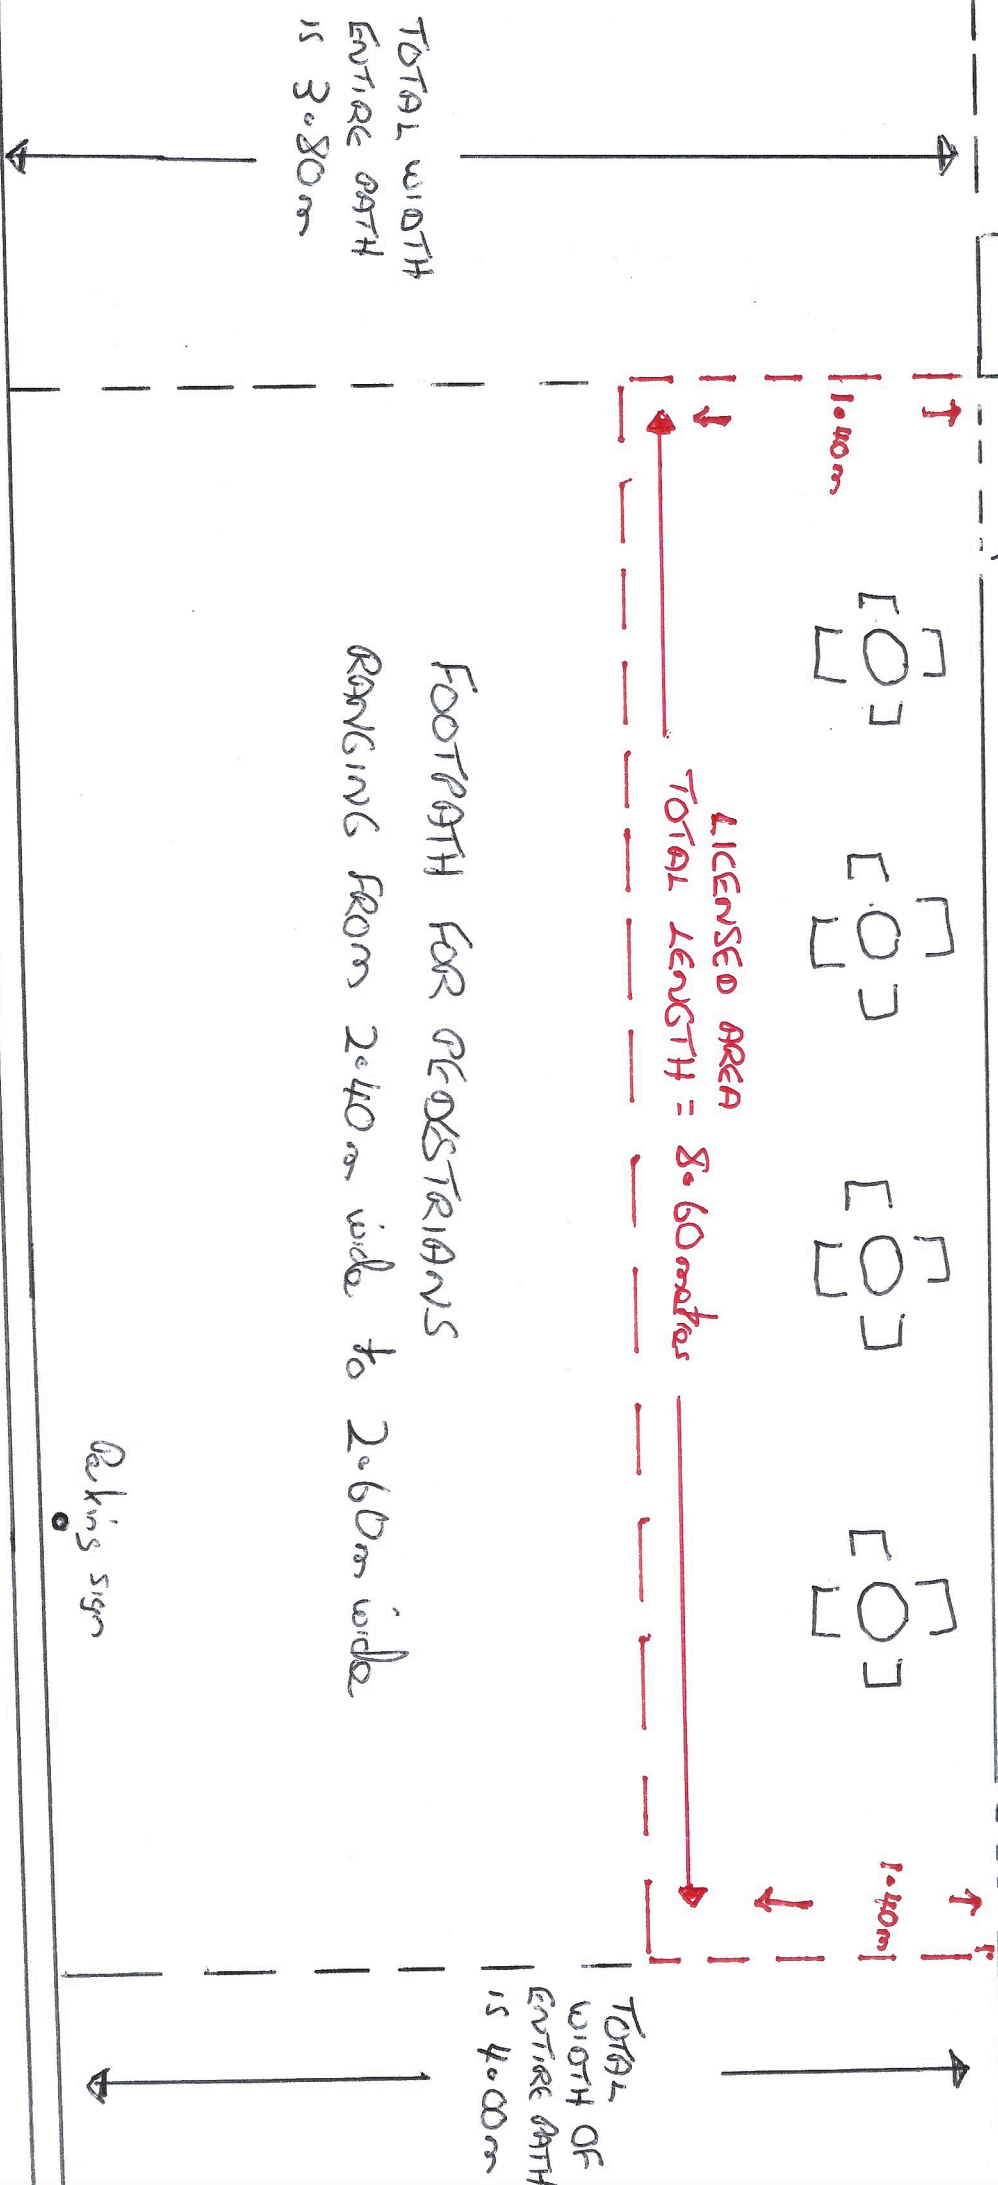 TOTAL WIDTH
ENTIRE PATH
IS 3.80m
1.40m
LICENSED AREA
TOTAL LENGTH = 8.60 metres
FOOTPATH FOR PEDESTRIANS
RANGING FROM 2.40m wide to 2.60m wide
Parking sign
1.40m
TOTAL
WIDTH OF
ENTIRE PATH
IS 4.00m